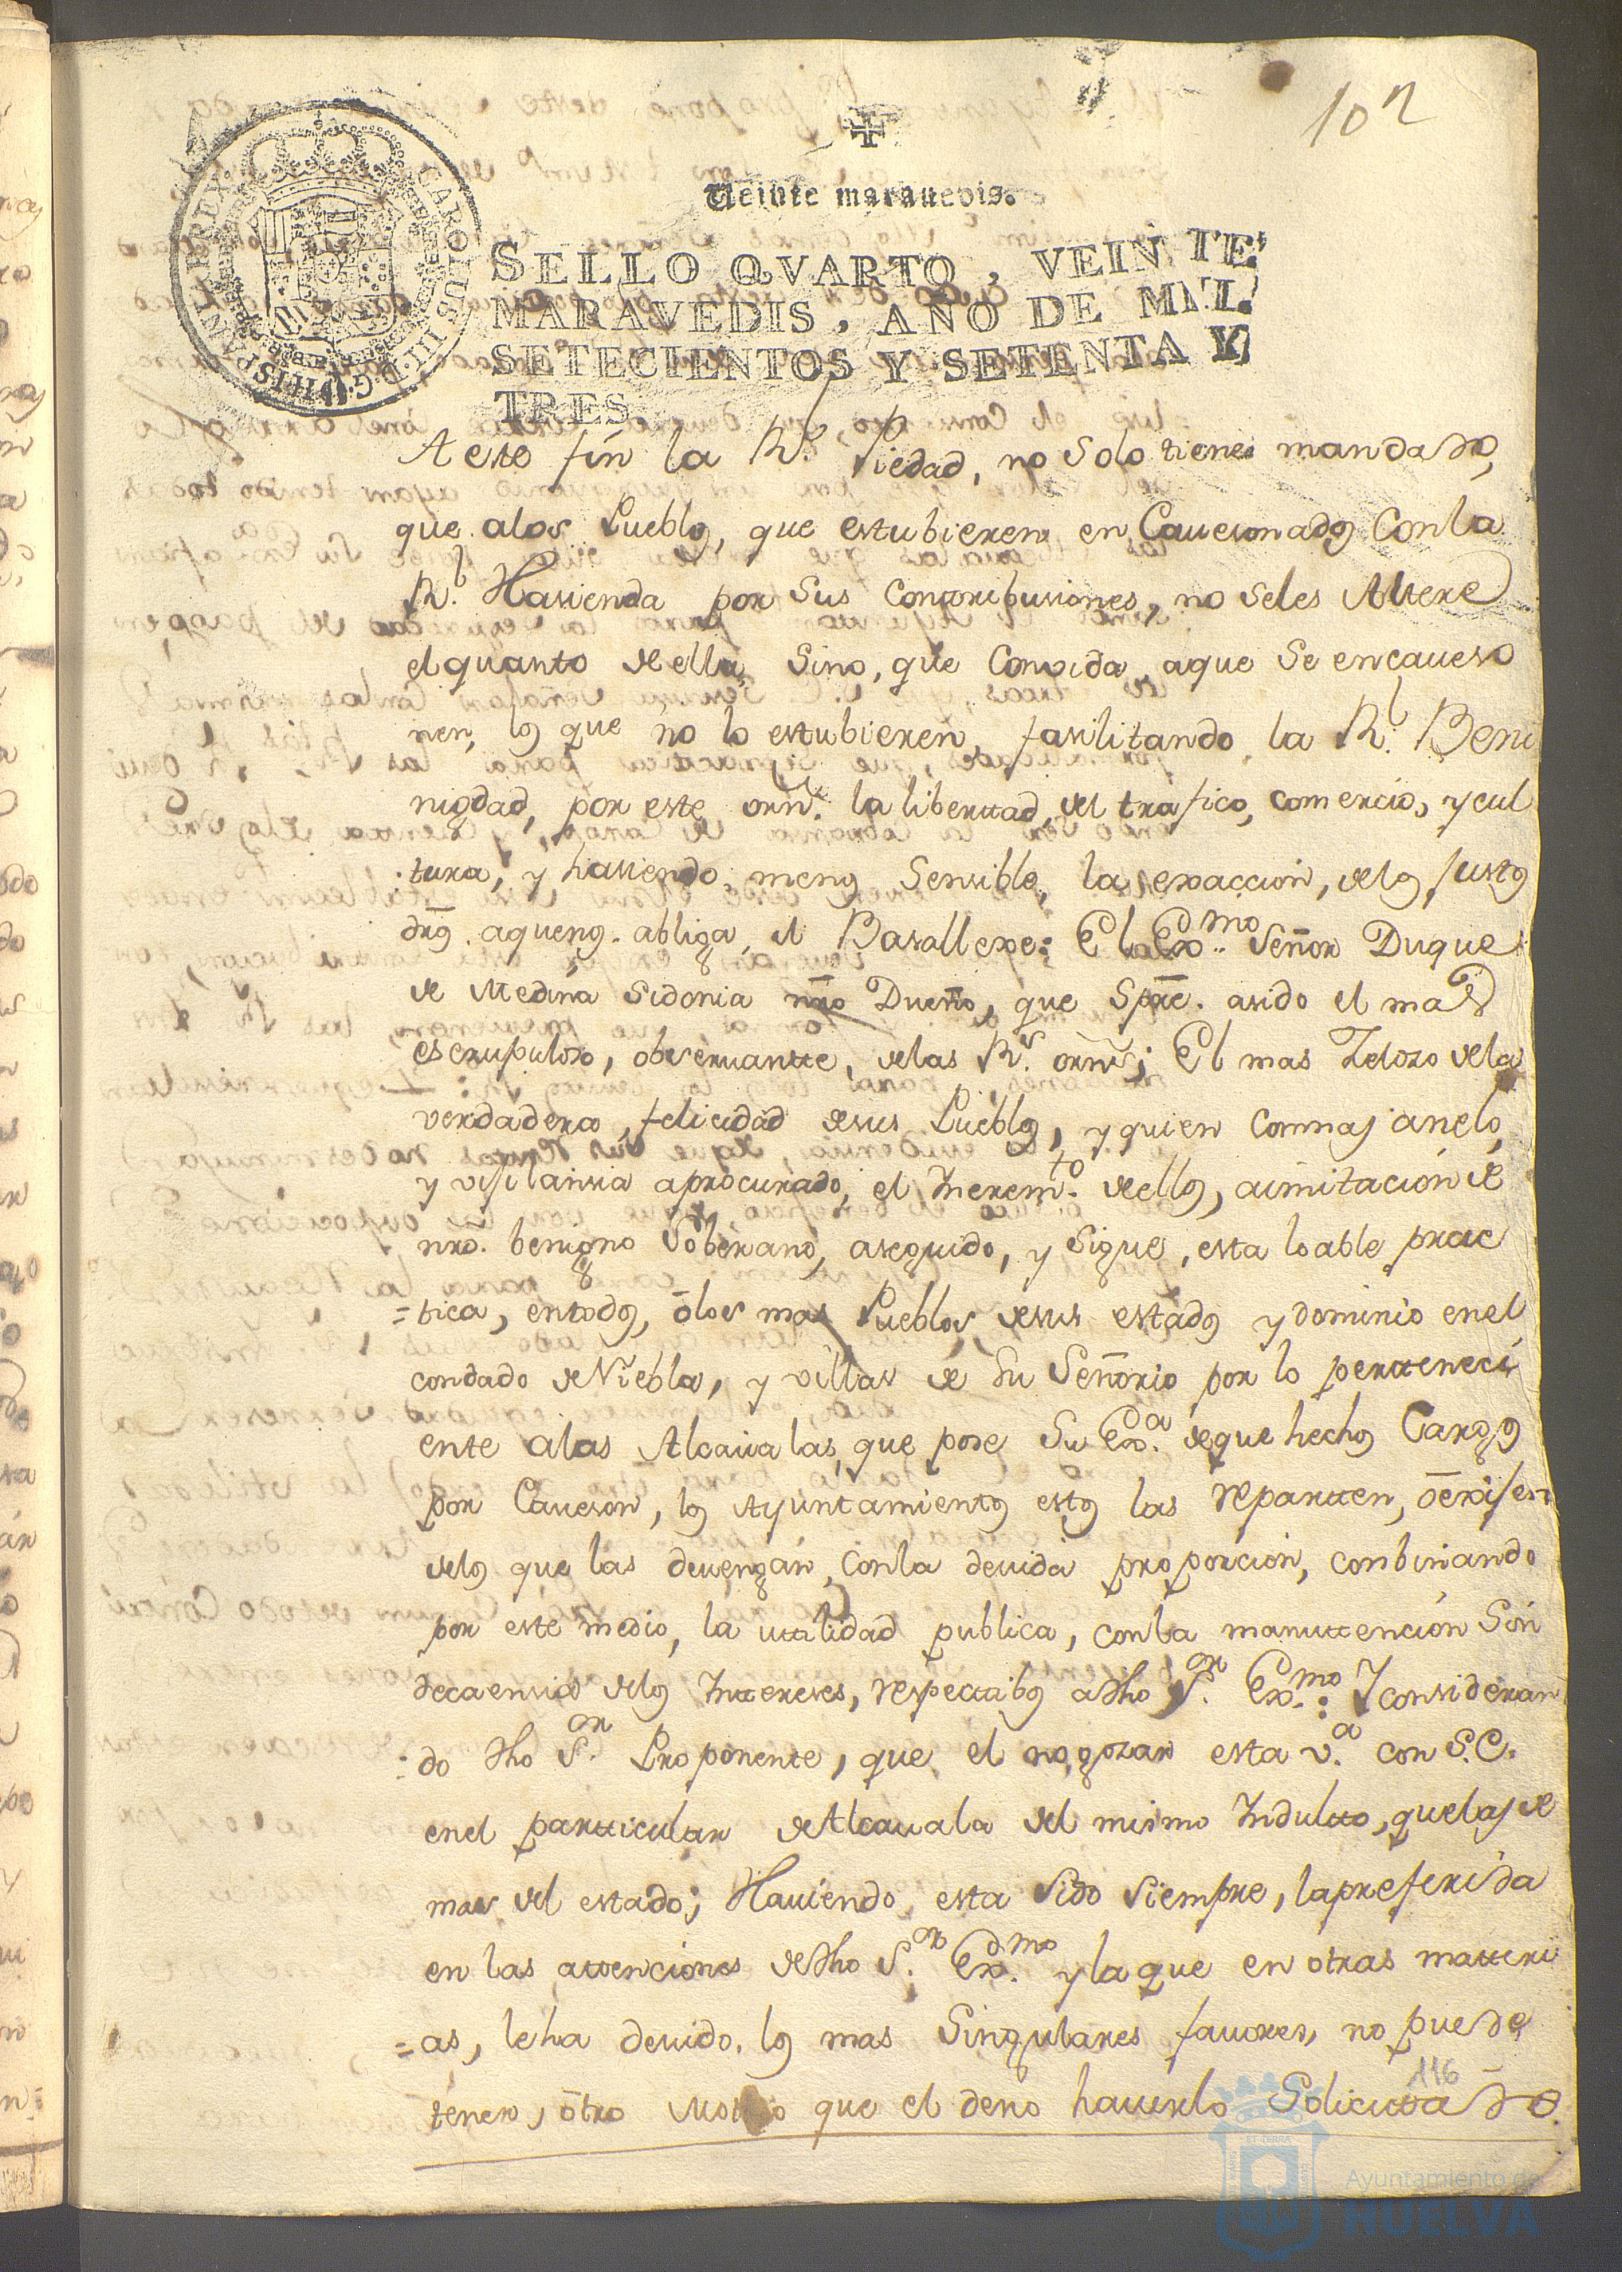 102
Veinte maravedis.
SELLO QVARTO, VEINTE
MARAVEDIS, AÑO DE MIL
SETECIENTOS Y SETENTA Y
TRES.
CAROLUS III D.G. HISPANIAR REX
A este fin la Rl. Piedad, no solo tiene mandado,
que alos Pueblos, que estubieren en Cauesonados Conla
Rl. Hasienda por sus Contribusiones, no seles Altere
el quanto de ella, Sino, que Convida aque Se encaveso
nen, los que no lo estubieren, fasilitando la Rl. Beni
nigdad, por este orn. la libertad, del trafico, comercio, y cul
tura, y hasiendo menos Sensible, la exaccion, delos Justos
drõs. aquenos. abliga, el Basallexe: El Exmo. Señor Duque
de Medina Sidonia nrõ Dueño, que Spre. asido el mas
escrupuloso, observantte, delas Rs. orns; El mas Zelozo dela
verdadera, felicidad desus Pueblos, y quien Conmas anelo,
y vijilansia aprocurado, el Increm.to deellos, aimitacion de
nrõ. benigno Soberano, aseguido, y Sigue, esta loable prac
=tica, entodos, õlos mas Pueblos desus estados y dominio enel
condado de Niebla, y villas de Su Señorio por lo perteneci
ente alas Alcavalas, que pose Su Ex.a deque hechos Cargos
por Caueson, los Ayuntamientos estos las repartten, õexijen
delos que las devengan, Conla devida proporcion, conbinando
por este medio, la utilidad publica, conla manuttencion Sin
decaensia delos Intereses, respectibos adho S.or Exmo.: Y consideran
=do dho S.or Proponente, que el no gozar esta v.a con S.E.
enel partticular deAlcavala del mismo Indultto, quelas de
mas del estado; Haviendo esta Sido Siempre, lapreferida
en las atenciones dedho S.or Exmo. y la que en otras matteri
=as, leha devido, los mas Singulares favores, no puede
tener, õtro Motivo que el deno haverlo Solicitado.
116
Ayuntamiento de
HUELVA